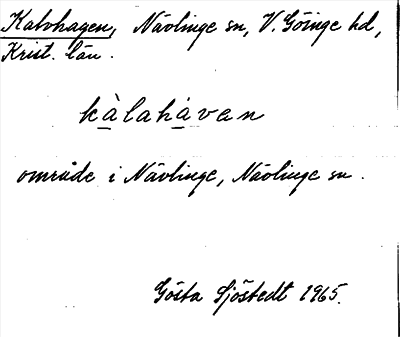 Kalvhagen, Nävlinge sn, V. Göinge hd,
Krist. län.
kàlahàvan
område i Nävlinge, Nävlinge sn.
Gösta Sjöstedt 1965.